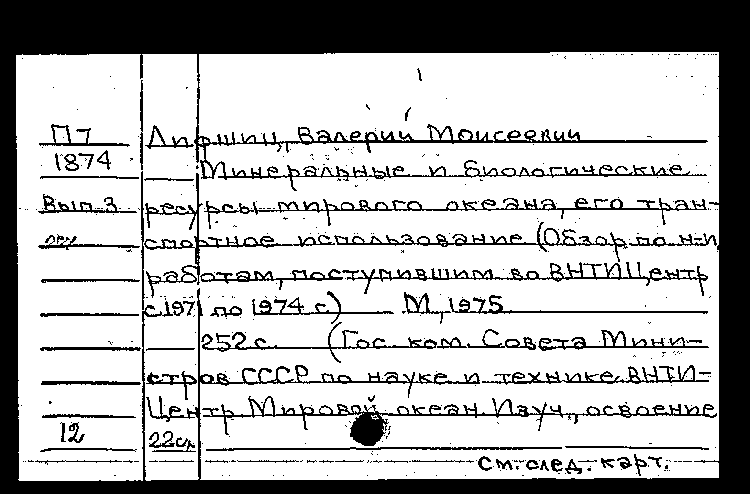 П7 Лифшиц, Валерий Моисеевич
1874 Минеральные и биологические
Вып.3 ресурсы мирового океана, его тран-
спортное использование (Обзор по н-и
работам, поступившим во ВНТИЦентр
с 1971 по 1974 г.) М., 1975
252 с. (Гос. ком. Совета Мини-
стров СССР по науке и технике. ВНТИ-
Центр Мировой океан. Изуч., освоение
12 22см
См. след. карт.